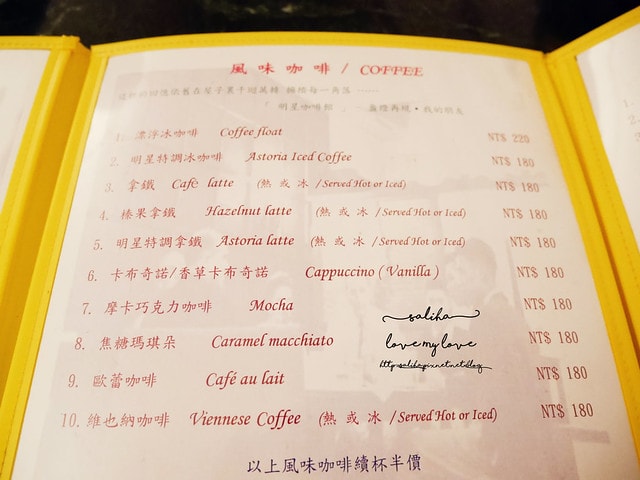 風味咖啡 / COFFEE
「明星咖啡館」
1. 漂浮冰咖啡 Coffee float NT$ 220
2. 明星特調冰咖啡 Astoria Iced Coffee NT$ 180
3. 拿鐵 Cafe latte (熱 或 冰 / Served Hot or Iced) NT$ 180
4. 榛果拿鐵 Hazelnut latte (熱 或 冰 / Served Hot or Iced) NT$ 180
5. 明星特調拿鐵 Astoria latte (熱 或 冰 / Served Hot or Iced) NT$ 180
6. 卡布奇諾/香草卡布奇諾 Cappuccino ( Vanilla ) NT$ 180
7. 摩卡巧克力咖啡 Mocha NT$ 180
saliha
8. 焦糖瑪琪朵 Caramel macchiato NT$ 180
love my love
9. 歐蕾咖啡 Café au lait NT$ 180
10. 維也納咖啡 Viennese Coffee (熱 或 冰 / Served Hot or Iced) NT$ 180
以上風味咖啡續杯半價